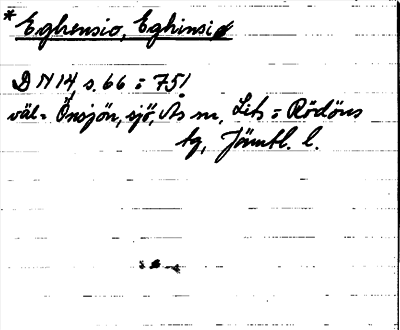 * Eghensio, Eghinsio
DN 14, s. 66 = 75!
väl = Önsjön, sjö, Ås sn, Lits = Rödöns
tg, Jämtl. l.